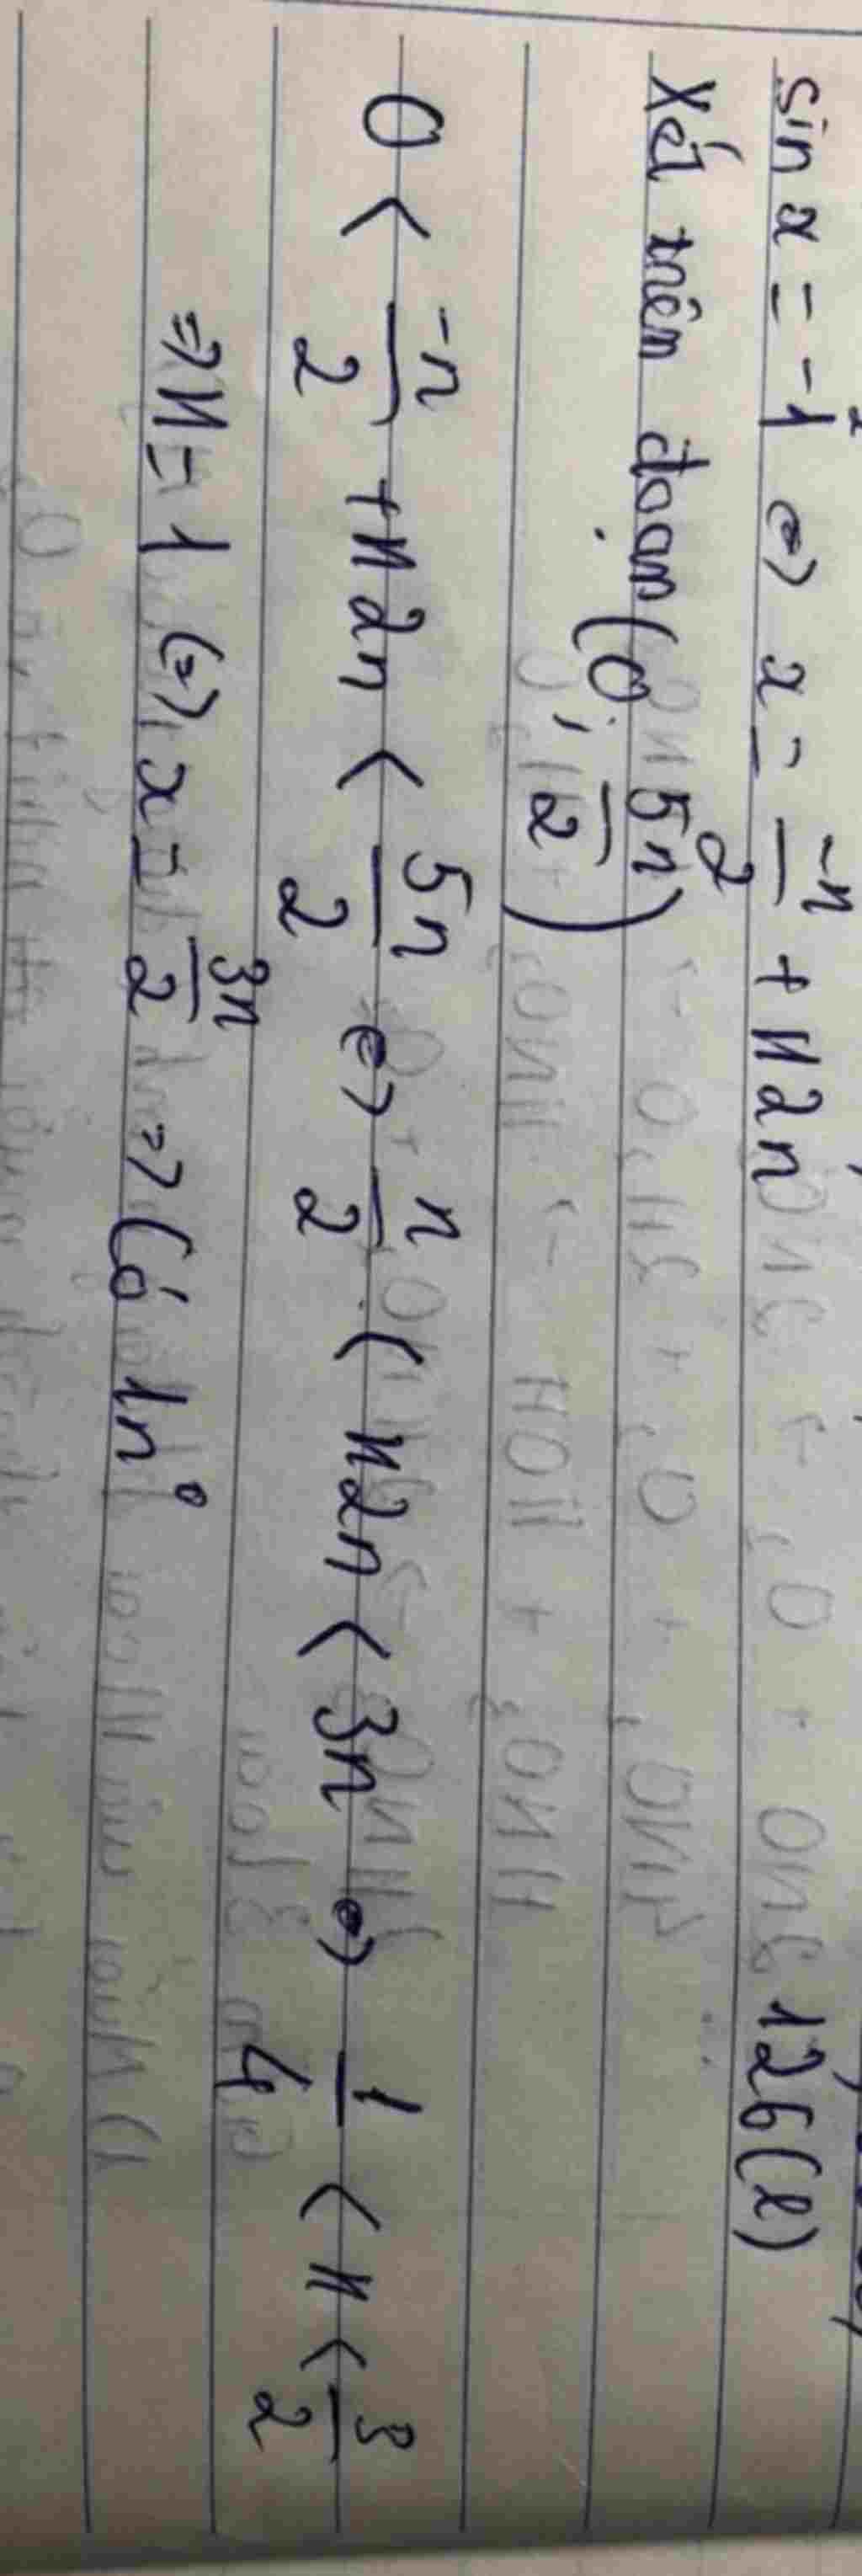 sin x = -1 <=> x = -π/2 + k2π
Xét trên đoạn (0; 5π/2)
0 < -π/2 + k2π < 5π/2 <=> π/2 < k2π < 3π <=> 1/4 < k < 3/2
=> k = 1 <=> x = 3π/2 => Có 1n°